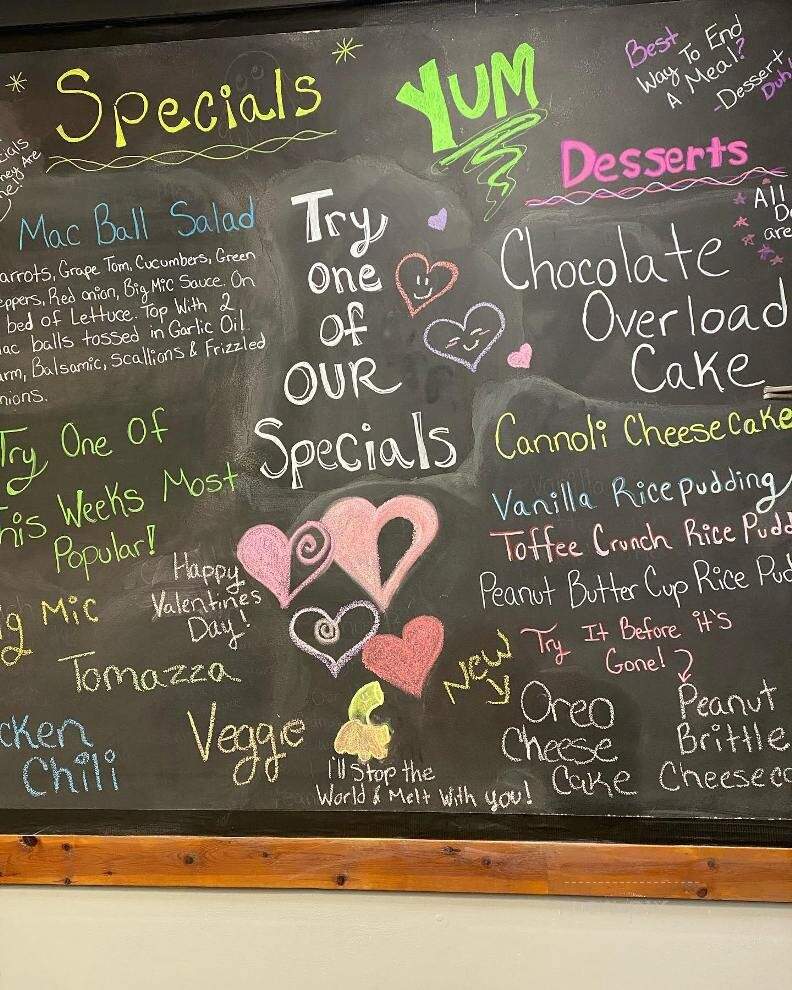 Specials
Mac Ball Salad
Grape Tom, Cucumbers, Green
Red onion, Big Mic Sauce. On
bed of Lettuce. Top With 2
balls tossed in Garlic Oil.
Balsamic, Scallions & Frizzled
Try One Of
This Weeks Most
Popular!
Mic
Tomazza
Chili
Veggie
Try
one
of
OUR
Specials
Happy
Valentines
Day!
I'll Stop the
World & Melt With you!
YUM
Best
Way To End
A Meal?
-Dessert
Duh!
Desserts
All
are
Chocolate
Overload
Cake
Cannoli Cheesecake
Vanilla Rice pudding
Toffee Crunch Rice Pudd
Peanut Butter Cup Rice Pud
Try It Before it's
Gone!
New
Oreo
Cheese
Cake
Peanut
Brittle
Cheeseca